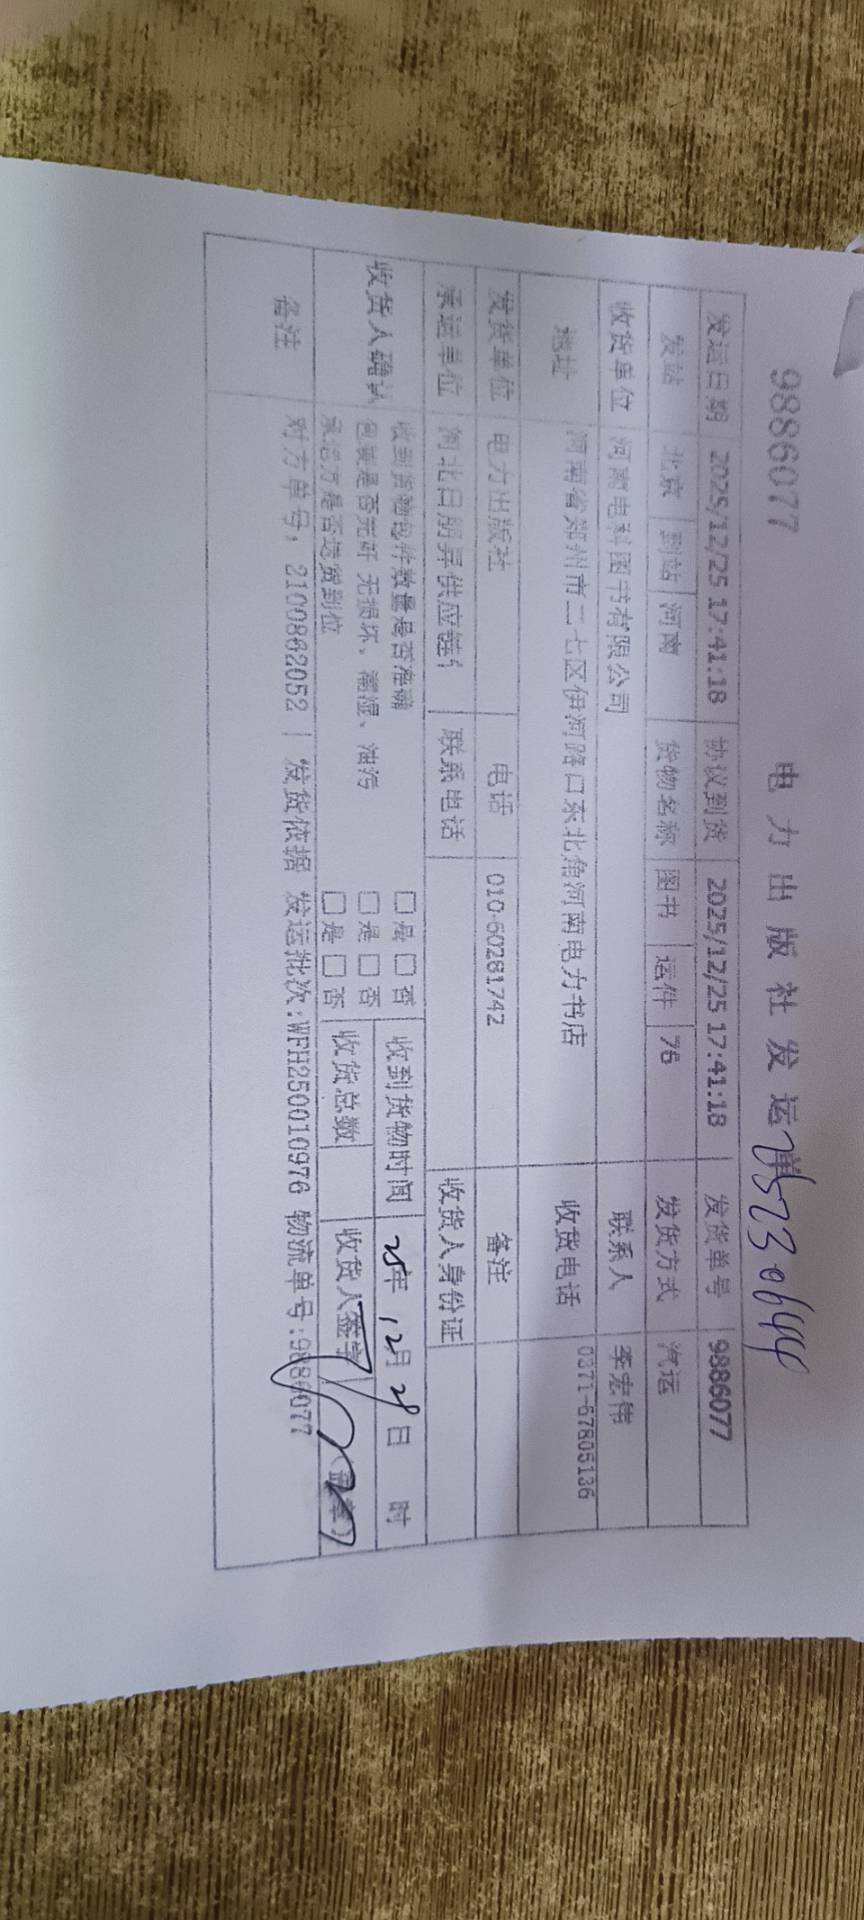 9886077 电力出版社发运单
发运日期 2025/12/25 17:41:18 协议到货 2025/12/25 17:41:18 发货单号 9886077
发站 北京 到站 河南 货物名称 图书 运件 76 发货方式 汽运
收货单位 河南电科图书有限公司 联系人 李宏伟
地址 河南省郑州市二七区伊河路口东北角河南电力书店 收货电话 0371-67805136
发货单位 电力出版社 电话 010-60281742 备注
承运单位 河北日朋昇供应链 联系电话 收货人身份证
收货人确认 收到货物包件数量是否准确 □是 □否 收到货物时间 25年 12月 28日 时
包装是否完好 无损坏、潮湿、油污 □是 □否
承运方是否送货到位 □是 □否 收货总数 收货人签字 (盖章)
备注 对方单号: 2100862052 | 发货依据 发运批次:WFH250010976 物流单号:9886077